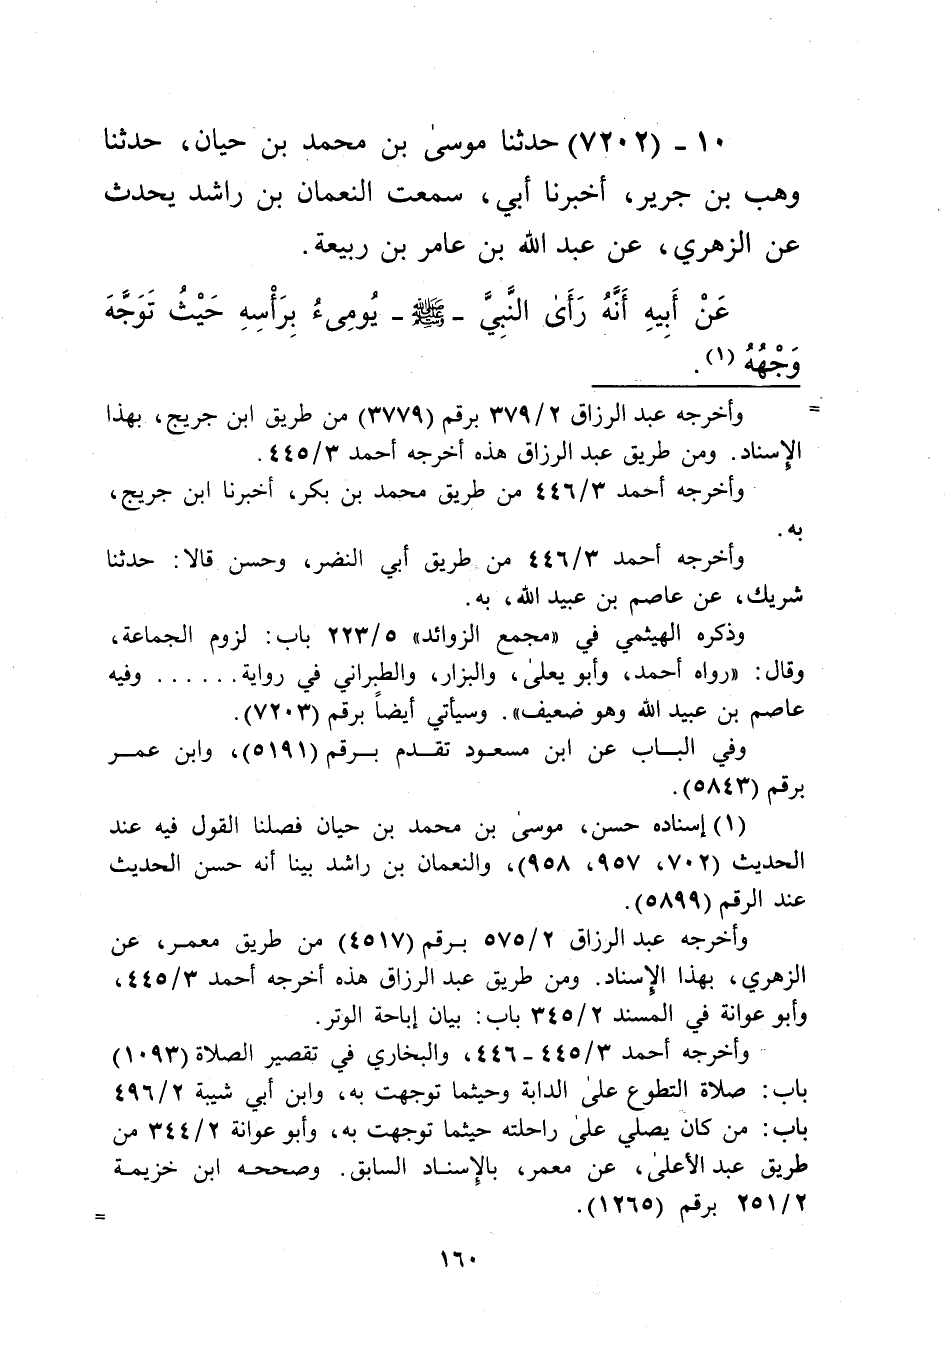 ١٠ - (٧٢٠٢) حدثنا موسىٰ بن محمد بن حيان، حدثنا
وهب بن جرير، أخبرنا أبي، سمعت النعمان بن راشد يحدث
عن الزهري، عن عبد الله بن عامر بن ربيعة.
عَنْ أَبِيهِ أَنَّهُ رَأَىٰ النَّبِيَّ - ﷺ - يُومِىءُ بِرَأْسِهِ حَيْثُ تَوَجَّهَ
وَجْهُهُ (١).
= وأخرجه عبد الرزاق ٣٧٩/٢ برقم (٣٧٧٩) من طريق ابن جريج، بهذا
الإسناد. ومن طريق عبد الرزاق هذه أخرجه أحمد ٤٤٥/٣.
وأخرجه أحمد ٤٤٦/٣ من طريق محمد بن بكر، أخبرنا ابن جريج،
به.
وأخرجه أحمد ٤٤٦/٣ من طريق أبي النضر، وحسن قالا: حدثنا
شريك، عن عاصم بن عبيد الله، به.
وذكره الهيثمي في «مجمع الزوائد» ٢٢٣/٥ باب: لزوم الجماعة،
وقال: «رواه أحمد، وأبو يعلىٰ، والبزار، والطبراني في رواية...... وفيه
عاصم بن عبيد الله وهو ضعيف». وسيأتي أيضاً برقم (٧٢٠٣).
وفي الباب عن ابن مسعود تقدم برقم (٥١٩١)، وابن عمر
برقم (٥٨٤٣).
(١) إسناده حسن، موسىٰ بن محمد بن حيان فصلنا القول فيه عند
الحديث (٧٠٢، ٩٥٧، ٩٥٨)، والنعمان بن راشد بينا أنه حسن الحديث
عند الرقم (٥٨٩٩).
وأخرجه عبد الرزاق ٥٧٥/٢ برقم (٤٥١٧) من طريق معمر، عن
الزهري، بهذا الإسناد. ومن طريق عبد الرزاق هذه أخرجه أحمد ٤٤٥/٣،
وأبو عوانة في المسند ٣٤٥/٢ باب: بيان إباحة الوتر.
وأخرجه أحمد ٤٤٥/٣ - ٤٤٦، والبخاري في تقصير الصلاة (١٠٩٣)
باب: صلاة التطوع علىٰ الدابة وحيثما توجهت به، وابن أبي شيبة ٤٩٦/٢
باب: من كان يصلي علىٰ راحلته حيثما توجهت به، وأبو عوانة ٣٤٤/٢ من
طريق عبد الأعلىٰ، عن معمر، بالإسناد السابق. وصححه ابن خزيمة
٢٥١/٢ برقم (١٢٦٥). =
١٦٠